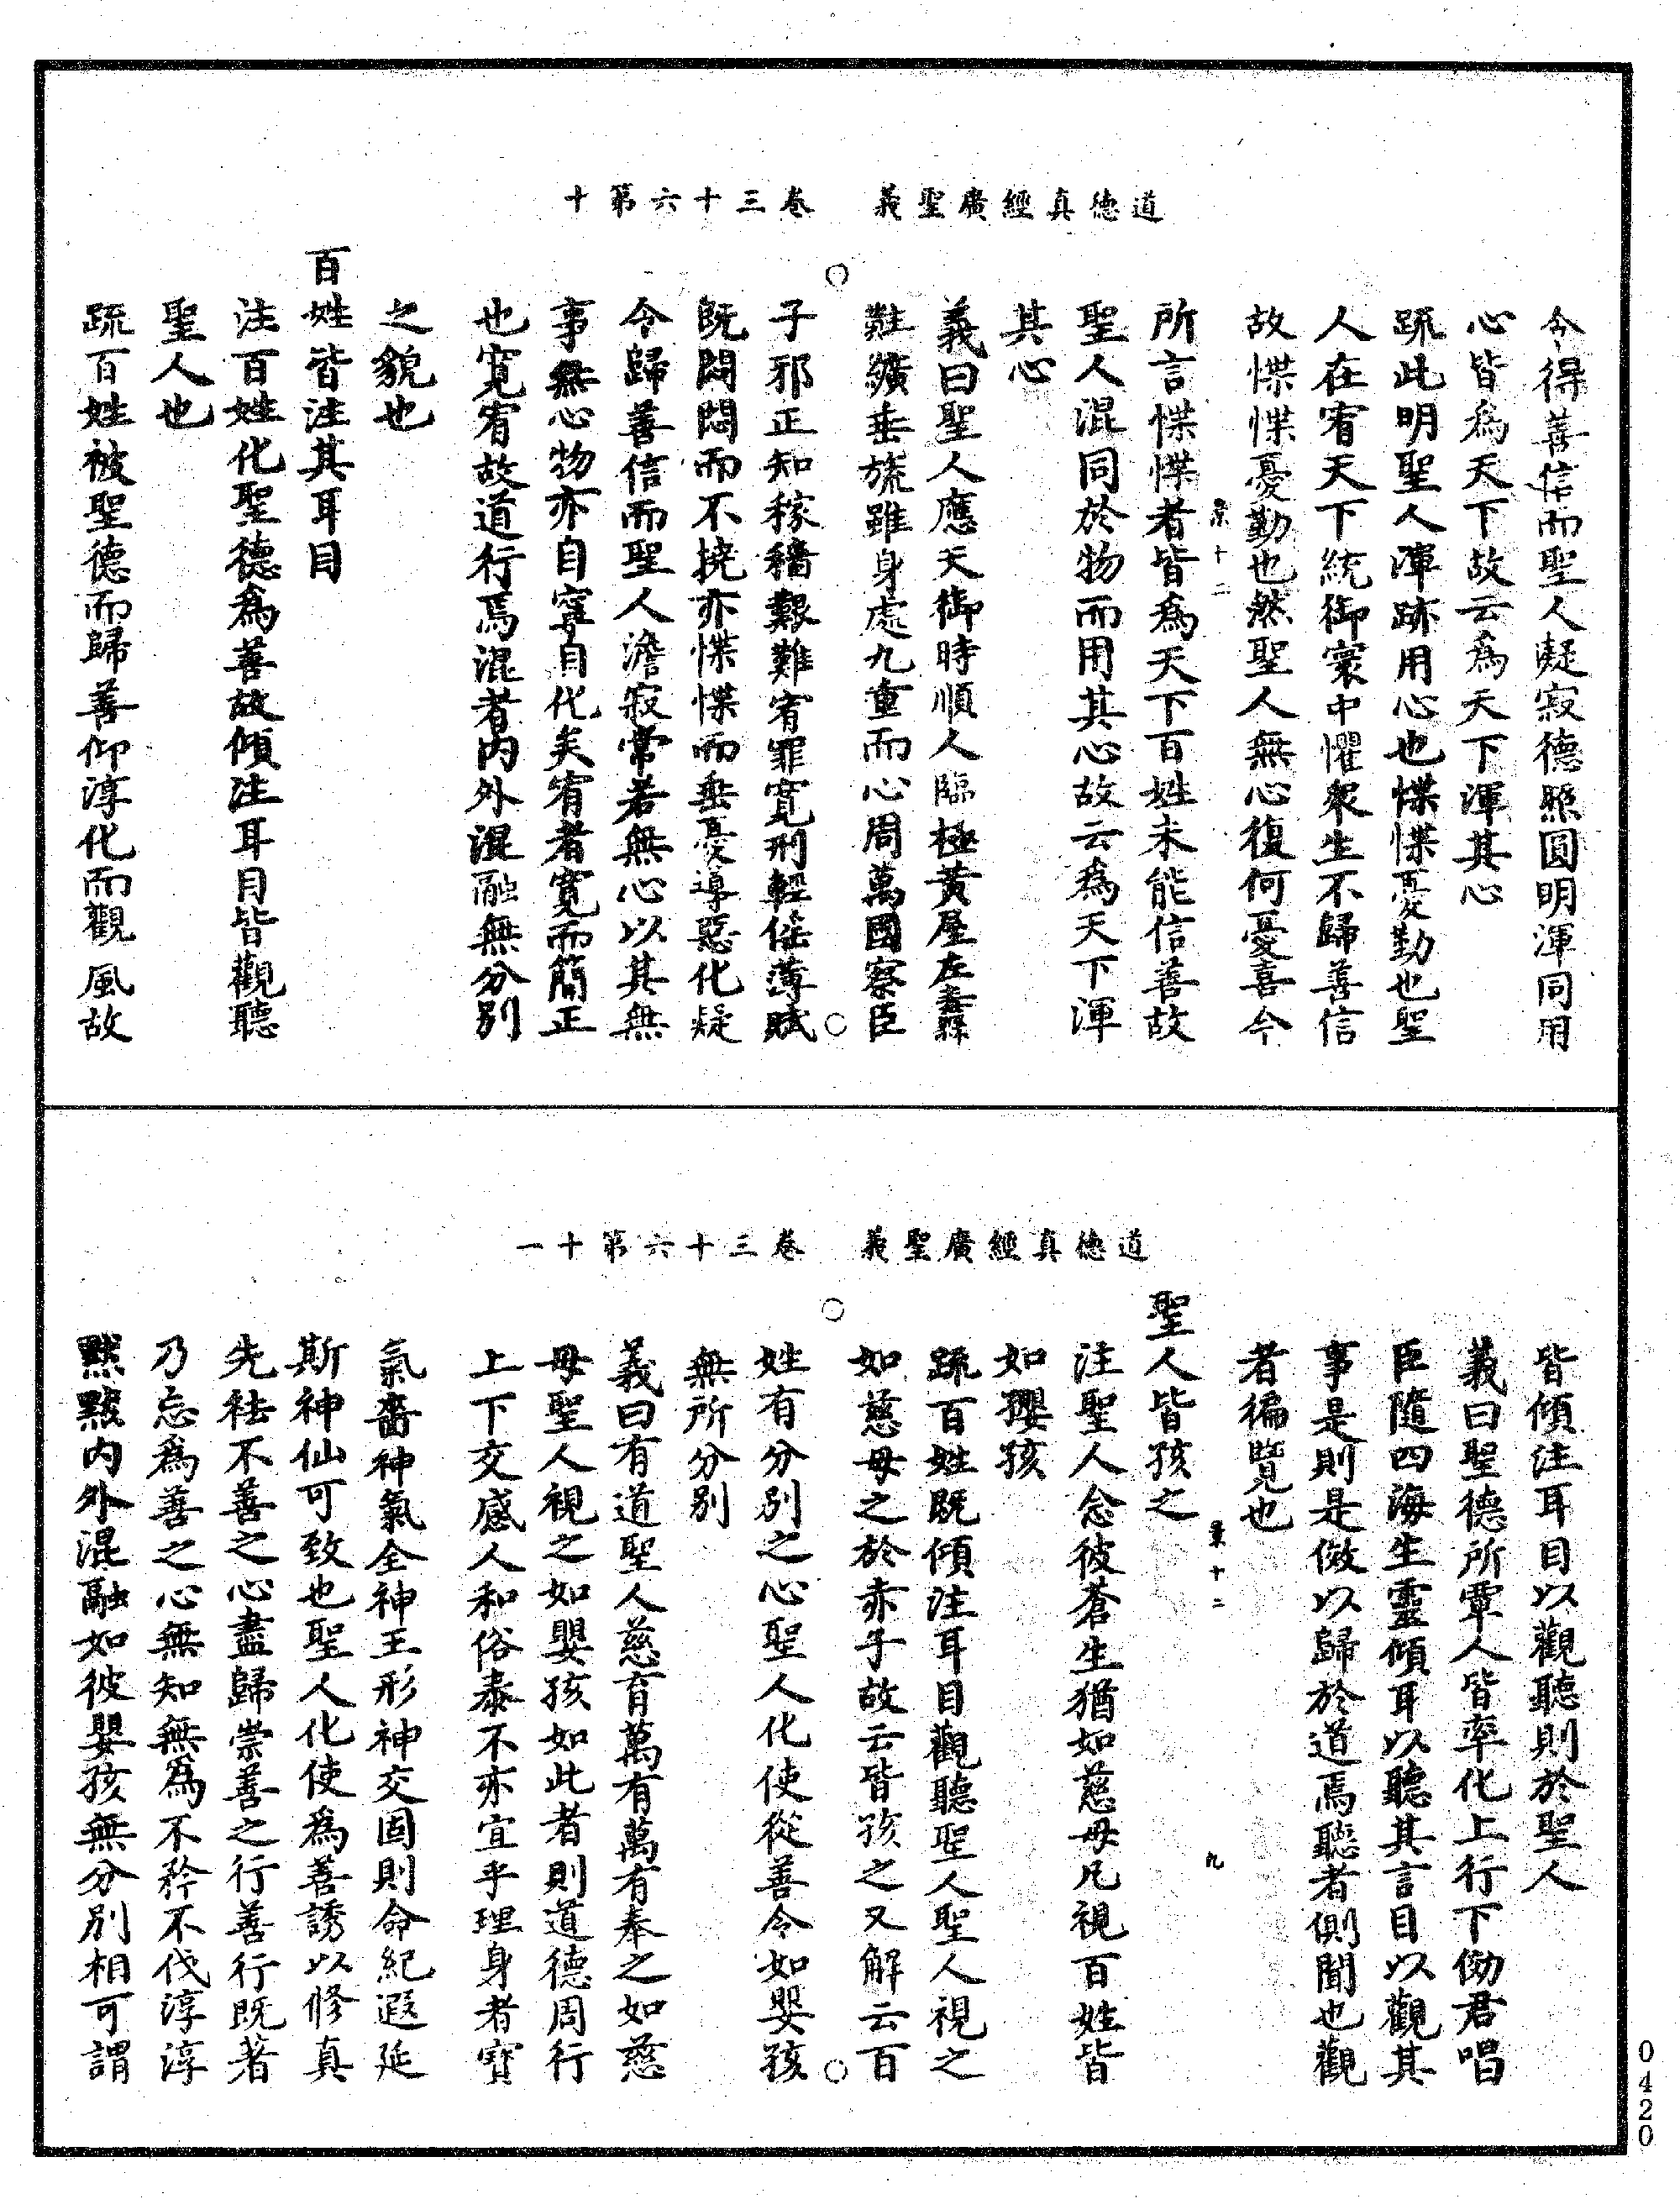 道德真經廣聖義　卷三十六第十
令得善信而聖人凝寂德照圓明渾同用
心皆為天下故云為天下渾其心
疏此明聖人渾跡用心也惵惵憂勤也聖
人在宥天下統御寰中懼眾生不歸善信
故惵惵憂勤也然聖人無心復何憂喜今
所言惵惵者皆為天下百姓未能信善故
聖人混同於物而用其心故云為天下渾
其心
義曰聖人應天御時順人臨極黃屋左纛
黈纊垂旒雖身處九重而心周萬國察臣
子邪正知稼穡艱難宥罪寬刑輕徭薄賦
既悶悶而不撓亦惵惵而垂憂導惡化疑
令歸善信而聖人澹寂常若無心以其無
事無心物亦自寧自化矣宥者寬而簡正
也寬宥故道行焉混者內外混融無分別
之貌也
百姓皆注其耳目
注百姓化聖德為善故傾注耳目皆觀聽
聖人也
疏百姓被聖德而歸善仰淳化而觀風故
道德真經廣聖義　卷三十六第十一
皆傾注耳目以觀聽則於聖人
義曰聖德所覃人皆率化上行下傚君唱
臣隨四海生靈傾耳以聽其言目以觀其
事是則是傚以歸於道焉聽者側聞也觀
者徧覽也
聖人皆孩之
注聖人念彼蒼生猶如慈母凡視百姓皆
如嬰孩
疏百姓既傾注耳目觀聽聖人聖人視之
如慈母之於赤子故云皆孩之又解云百
姓有分別之心聖人化使從善令如嬰孩
無所分別
義曰有道聖人慈育萬有萬有奉之如慈
母聖人視之如嬰孩如此者則道德周行
上下交感人和俗泰不亦宜乎理身者寶
氣嗇神氣全神王形神交固則命紀遐延
斯神仙可致也聖人化使為善誘以修真
先祛不善之心盡歸崇善之行善行既著
乃忘為善之心無知無為不矜不伐淳淳
默默內外混融如彼嬰孩無分別相可謂
0420